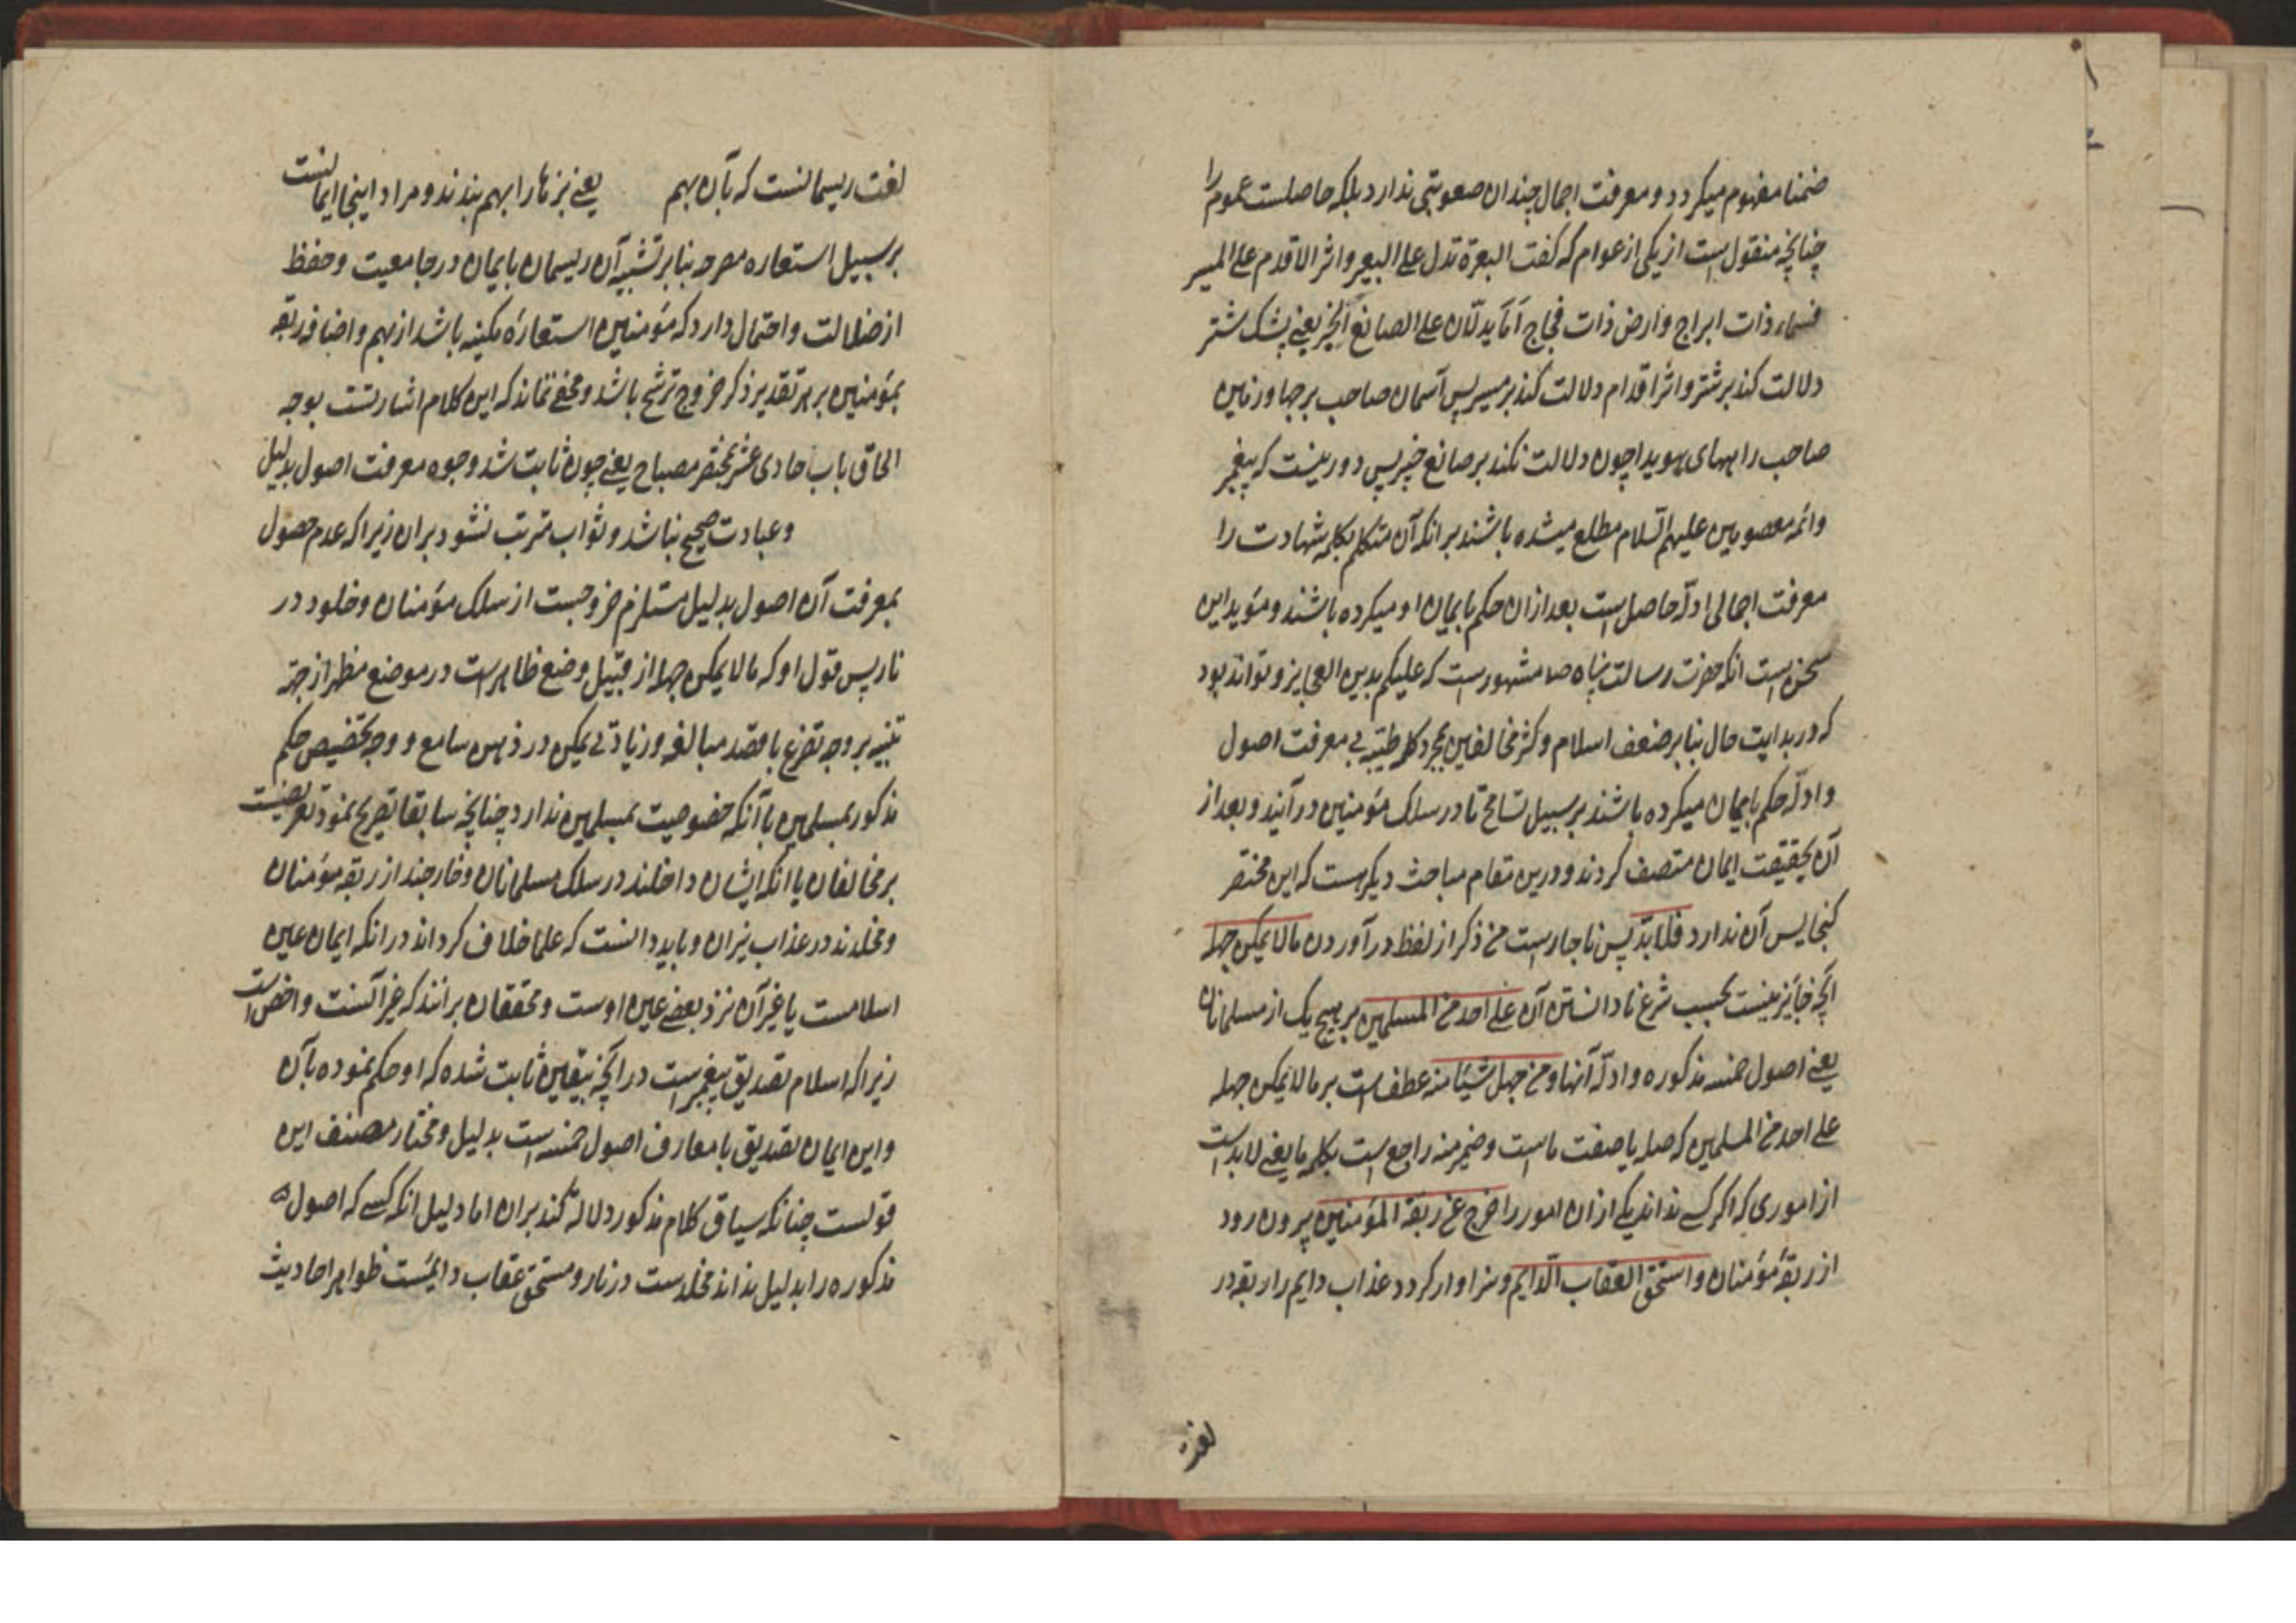 ضمنا مفهوم میکردد و معرفت اجمال چندان صعوبتی ندارد بلکه حاصلست عموم را
چنانچه منقول است از یکی از عوام که کفت البعرة تدل علی البعیر و اثر الاقدم علی المسیر
فسماء ذات ابراج و ارض ذات فجاج اما یدلّان علی الصانع الخبیر یعنی پشک شتر
دلالت کند بر شتر و اثر اقدام دلالت کند بر مسیر پس آسمان صاحب برجها و زمین
صاحب راههای هویدا چون دلالت نکند بر صانع خبیر پس دور نیست که پیغمبر
و ائمه معصومین علیهم السّلام مطلع میشده باشند بر انکه آن متکلم بکلمه شهادت را
معرفت اجمالی ادلّه حاصل است بعد از ان حکم بایمان او میکرده باشند و مؤید این
سخن است انکه حضرت رسالت پناه صلا مشهور است که علیکم بدین العجایز و تواند بود
که در بدایت حال بنا بر ضعف اسلام و کثر مخالفین بمجرد کلمه طیّبه بی معرفت اصول
و ادلّه حکم بایمان میکرده باشند بر سبیل تسامح تا در سلک مؤمنین در آیند و بعد از
آن بحقیقت ایمان متصف کردند و درین مقام مباحث دیکر هست که این مختصر
کنجایس آن ندارد فلا بدّ پس ناچار است من ذکر از لفظ در آوردن ما لا یمکن جهله
آنچه جایز نیست بحسب شرع نادانستن آن علی احد من المسلمین بر هیچ یک از مسلمانان
یعنی اصول خمسه مذکوره و ادلّه آنها و من جهل شیئا منه عطف است بر ما لا یمکن جهله
علی احد من المسلمین که صله یا صفت ما است و ضمیر منه راجع است بکلمه ما یعنی لا بد است
از اموری که اکر کسی نداند یکی از ان امور را خرج عن ربقة المؤمنین بیرون رود
از ربقه مؤمنان و استحق العقاب الدایم و سزاوار کردد عذاب دایم را ربقه در
لغت
لغت ریسمانست که بآن بهم یعنی بزها را بهم بندند و مراد اینجا ایمانست
بر سبیل استعاره مصرحه بنا بر تشبیه آن ریسمان بایمان در جامعیت و حفظ
از ضلالت و احتمال دارد که مؤمنین استعارهٔ مکنیه باشد از بهم و اضافه ربقه
بمؤمنین بر هر تقدیر ذکر خروج ترشیح باشد و مخفی نماند که این کلام اشارتست بوجه
الحاق باب حادی عشر بمختصر مصباح یعنی چون ثابت شد وجوه معرفت اصول بدلیل
و عبادت صحیح نباشد و ثواب مترتب نشود بران زیرا که عدم حصول
بمعرفت آن اصول بدلیل مستلزم خروجست از سلک مؤمنان و خلود در
نار پس قول او که ما لا یمکن جهله از قبیل وضع ظاهر است در موضع مظهر از جهة
تنبیه بر وجه تفرع با قصد مبالغه و زیادتی یمکن در ذهن سامع و وجه تخصیص حکم
مذکور بمسلمین با آنکه خصوصیت بمسلمین ندارد چنانچه سابقا تصریح نمود تعریضست
بر مخالفان یا انکه ایشان داخلند در سلک مسلمانان و خارجند از ربقه مؤمنان
و مخلدند در عذاب نیران و باید دانست که علما خلاف کرداند در انکه ایمان عین
اسلامست یا غیر آن نزد بعضی عین اوست و محققان برانند که غیر آنست و اخص است
زیرا که اسلام تصدیق پیغمبر است در آنچه بیقین ثابت شده که او حکم نموده بآن
و این ایمان تصدیق با معارف اصول خمسه است بدلیل و مختار مصنف این
قولست چنانکه سیاق کلام مذکور دلالة کند بران اما دلیل انکه کسی که اصول
مذکوره را بدلیل نداند مخلدست در نار و مستحق عقاب دایمست ظواهر احادیث